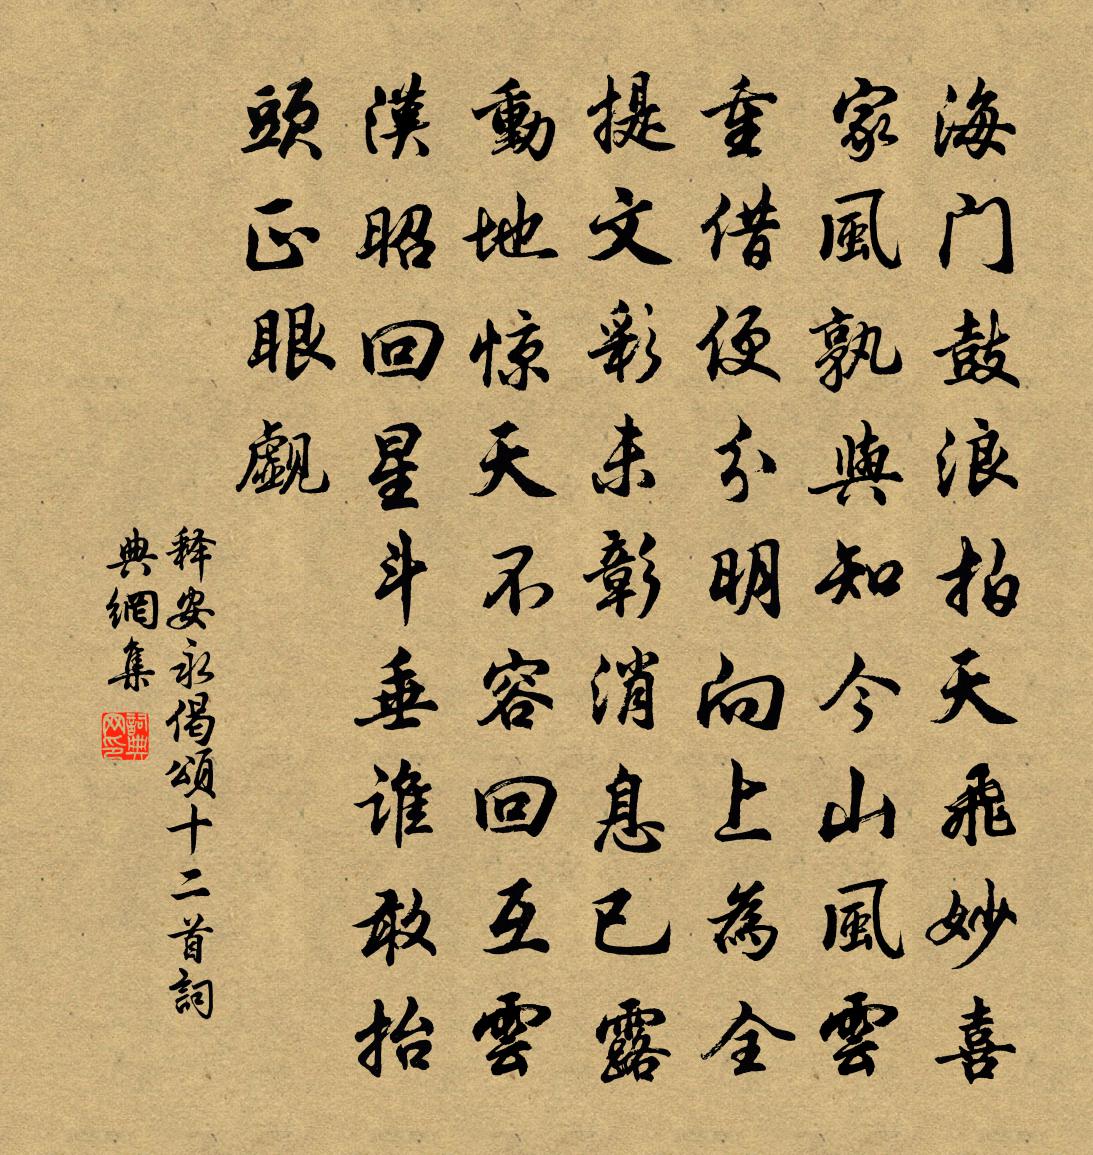 海门鼓浪拍天飛妙喜
家風孰與知今山風雲
重借便分明向上為全
提文彩未彰消息已露
動地惊天不容回互雲
漢昭回星斗垂谁敢抬
頭正眼觑
释安永偈頌十二首詞
典網集
詞典
网印